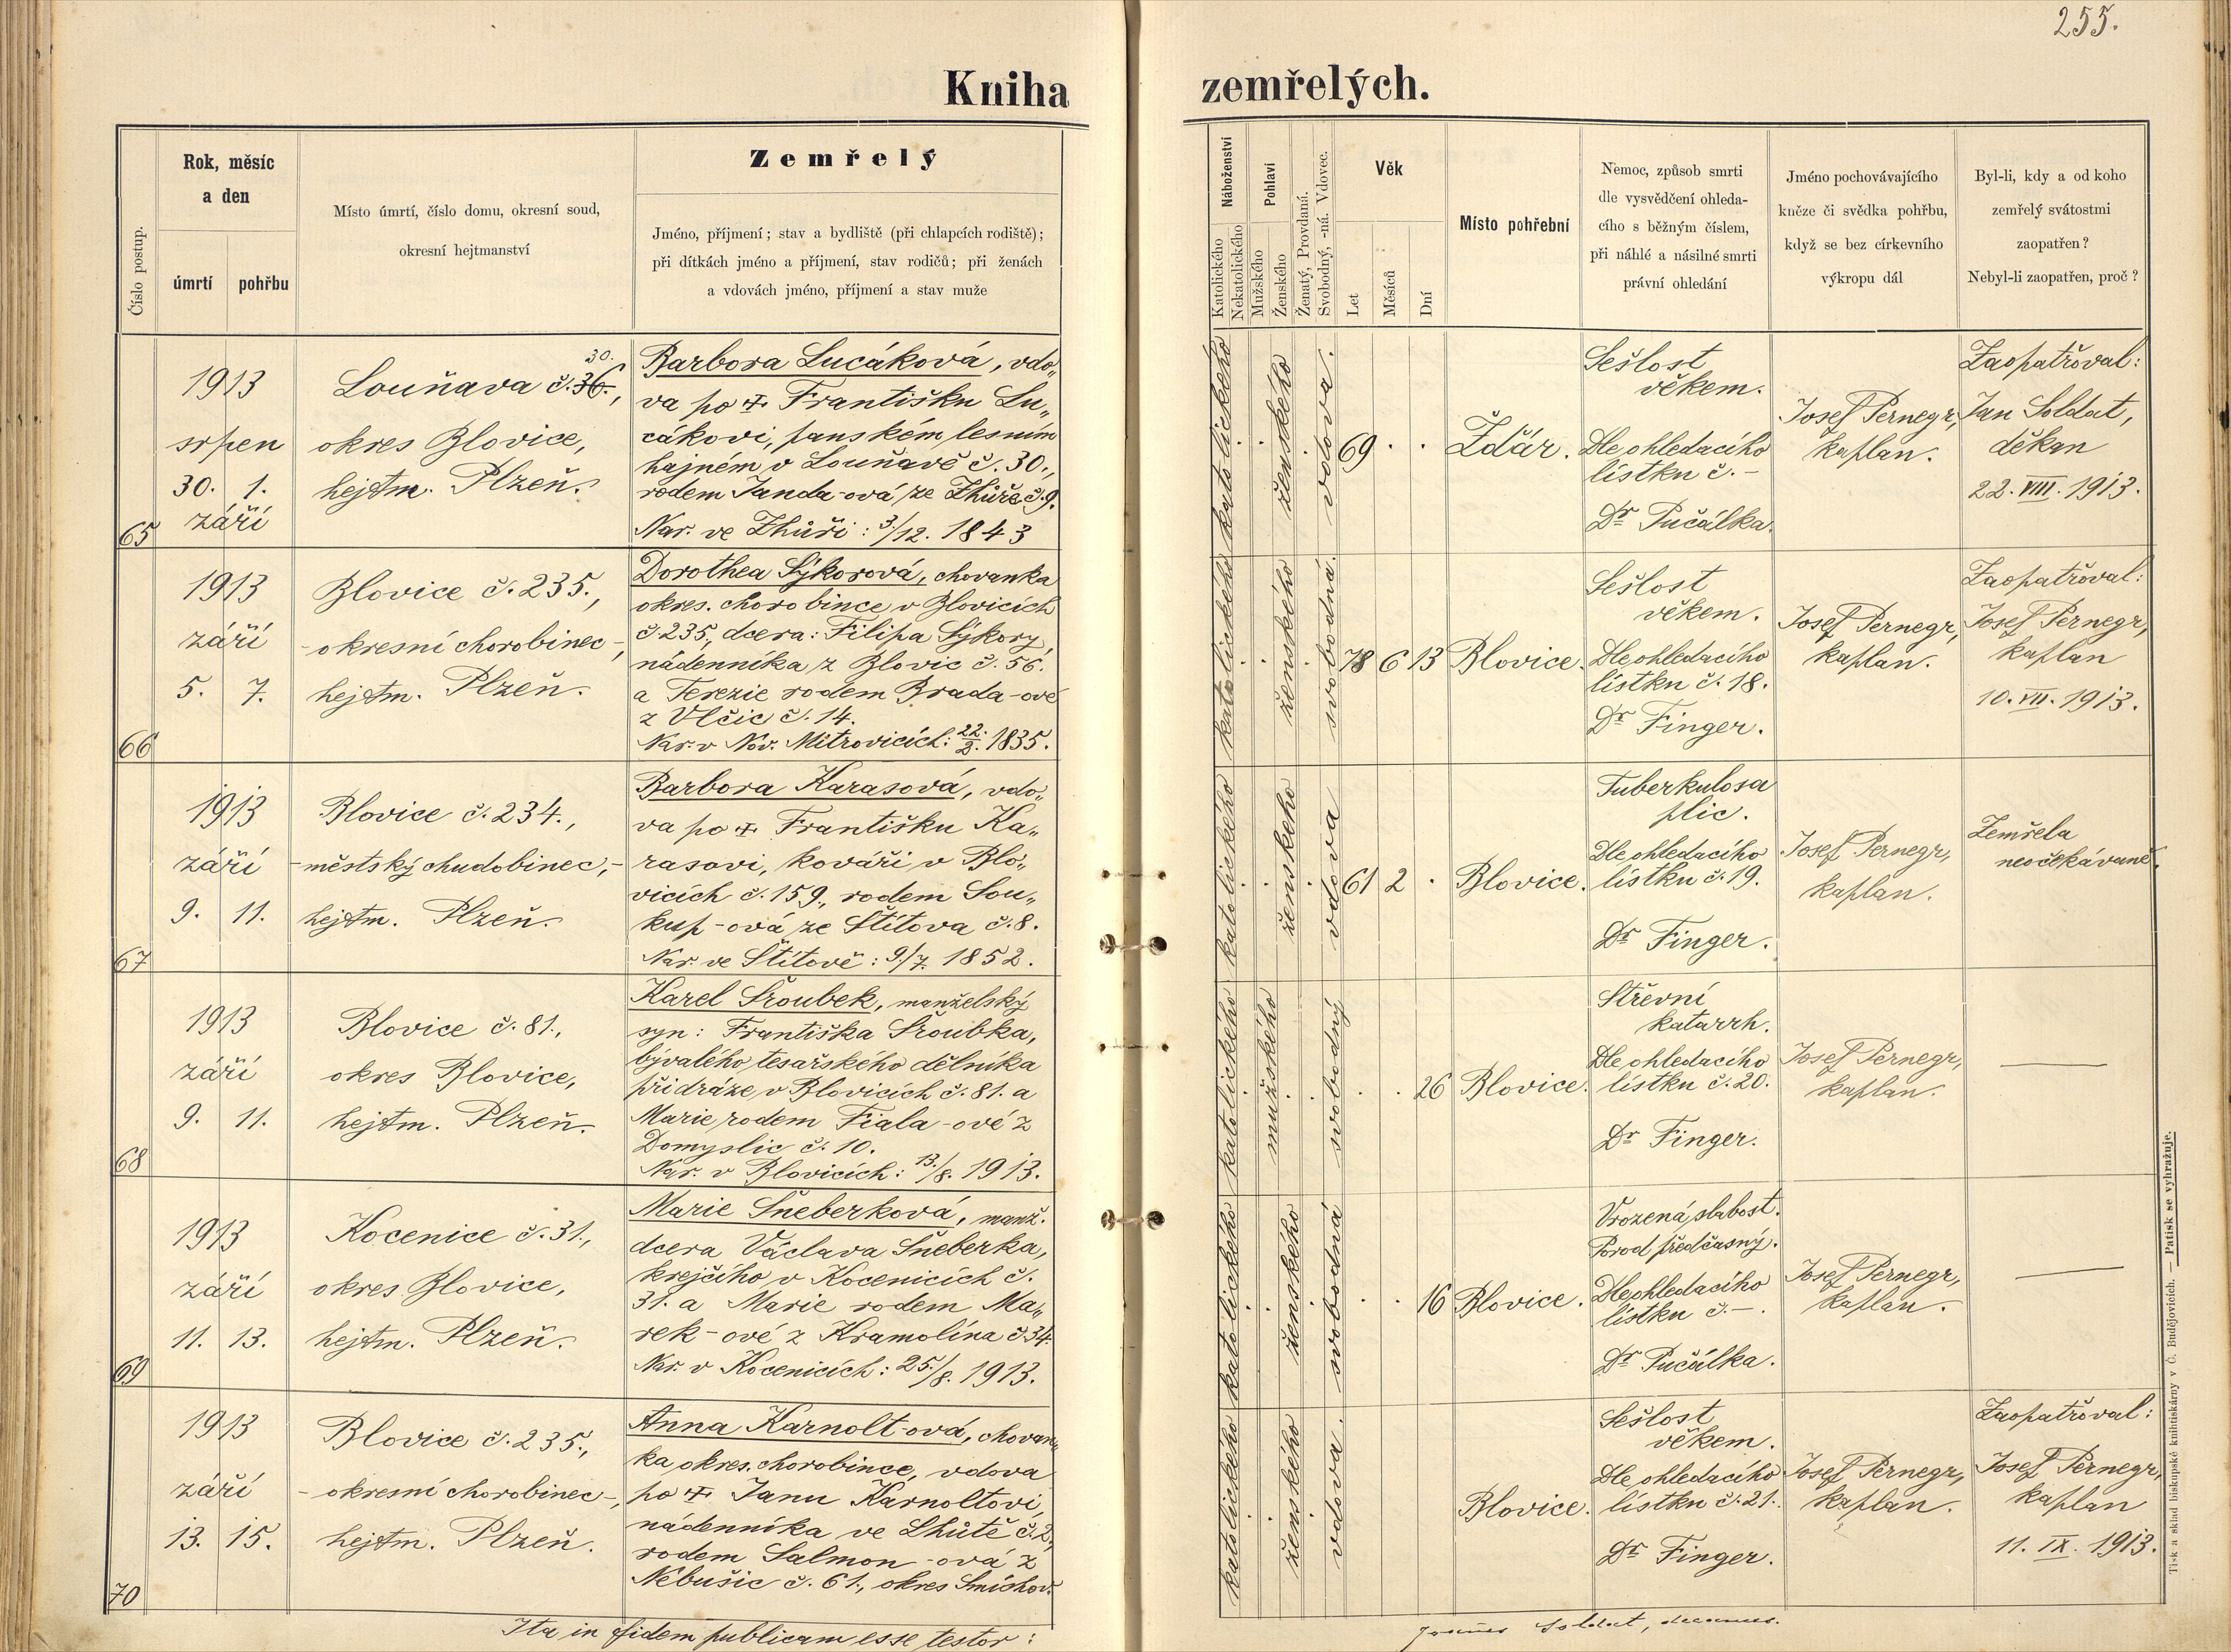 255.
Kniha zemřelých.
Číslo postup.
Rok, měsíc
a den
úmrtí
pohřbu
Místo úmrtí, číslo domu, okresní soud,
okresní hejtmanství
Zemřelý
Jméno, příjmení; stav a bydliště (při chlapcích rodiště);
při dítkách jméno a příjmení, stav rodičů; při ženách
a vdovách jméno, příjmení a stav muže
Náboženství
Katolického
Nekatolického
Pohlaví
Mužského
Ženského
Ženatý, Provdaná.
Svobodný, -ná. Vdovec.
Věk
Let
Měsíců
Dní
Místo pohřební
Nemoc, způsob smrti
dle vysvědčení ohleda-
cího s běžným číslem,
při náhlé a násilné smrti
právní ohledání
Jméno pochovávajícího
kněze či svědka pohřbu,
když se bez církevního
výkropu dál
Byl-li, kdy a od koho
zemřelý svátostmi
zaopatřen?
Nebyl-li zaopatřen, proč?
65
1913
srpen
30. 1.
září
30.
Louňava č. 36.,
okres Blovice,
hejtm. Plzeň.
Barbora Lucáková, vdo„
va po ✝ Františku Lu„
cákovi, panském lesním
hajném v Louňavě č. 30.,
rodem Janda-ová ze Zhůře č. 9.
Nar. ve Zhůři: 3./12. 1843
katolického
ženského
vdova.
69 . .
Ždár.
Sešlost
věkem.
Dle ohledacího
lístku č. –
Dr Pučálka.
Josef Pernegr,
kaplan.
Zaopatřoval:
Jan Soldat,
děkan
22. VIII. 1913.
66
1913
září
5. 7.
Blovice č. 235.,
- okresní chorobinec -,
hejtm. Plzeň.
Dorothea Sýkorová, chovanka
okres. chorobince v Blovicích
č. 235., dcera: Filipa Sýkory,
nádenníka z Blovic č. 56.
a Terezie rodem Brada-ové
z Vlčic č. 14.
Nar. v Nov. Mitrovicích: 22./2. 1835.
katolického
ženského
svobodná.
78 6 13
Blovice.
Sešlost
věkem.
Dle ohledacího
lístku č. 18.
Dr Finger.
Josef Pernegr,
kaplan.
Zaopatřoval:
Josef Pernegr,
kaplan
10. VII. 1913.
67
1913
září
9. 11.
Blovice č. 234.,
- městský chudobinec, -
hejtm. Plzeň.
Barbora Karasová, vdo„
va po ✝ Františku Ka„
rasovi, kováři v Blo„
vicích č. 159., rodem Sou„
kup-ová ze Štítova č. 8.
Nar. ve Štítově: 9./7. 1852.
katolického
ženského
vdova
61 2 .
Blovice.
Tuberkulosa
plic.
Dle ohledacího
lístku č. 19.
Dr Finger.
Josef Pernegr,
kaplan.
Zemřela
neočekávaně.
68
1913
září
9. 11.
Blovice č. 81.,
okres Blovice,
hejtm. Plzeň.
Karel Šroubek, manželský
syn: Františka Šroubka,
bývalého tesařského dělníka
při dráze v Blovicích č. 81. a
Marie rodem Fiala-ové z
Domyslic č. 10.
Nar. v Blovicích: 13./8. 1913.
katolického
mužského
svobodný
. . 26
Blovice.
Střevní
katarrh.
Dle ohledacího
lístku č. 20.
Dr Finger.
Josef Pernegr,
kaplan.
—
69
1913
září
11. 13.
Kocenice č. 31.,
okres Blovice,
hejtm. Plzeň.
Marie Šneberková, manž.
dcera Václava Šneberka,
krejčího v Kocenicích č.
31. a Marie rodem Ma„
rek-ové z Kramolína č. 34.
Nar. v Kocenicích: 25./8. 1913.
katolického
ženského
svobodná
. . 16
Blovice.
Vrozená slabost.
Porod předčasný.
Dle ohledacího
lístku č. –.
Dr Pučálka.
Josef Pernegr,
kaplan.
—
70
1913
září
13. 15.
Blovice č. 235.,
- okresní chorobinec -,
hejtm. Plzeň.
Anna Karnolt-ová, chovan„
ka okres. chorobince, vdova
po ✝ Janu Karnoltovi,
nádenníka ve Lhůtě č. 2,
rodem Salmon-ová z
Nebušic č. 61., okres Smíchov.
katolického
ženského
vdova.
Blovice.
Sešlost
věkem.
Dle ohledacího
lístku č. 21.
Dr Finger.
Josef Pernegr,
kaplan.
Zaopatřoval:
Josef Pernegr,
kaplan
11. IX. 1913.
Ita in fidem publicam esse testor:
Joannes Soldat, decanus.
Tisk a sklad biskupské knihtiskárny v Č. Budějovicích. — Patisk se vyhražuje.